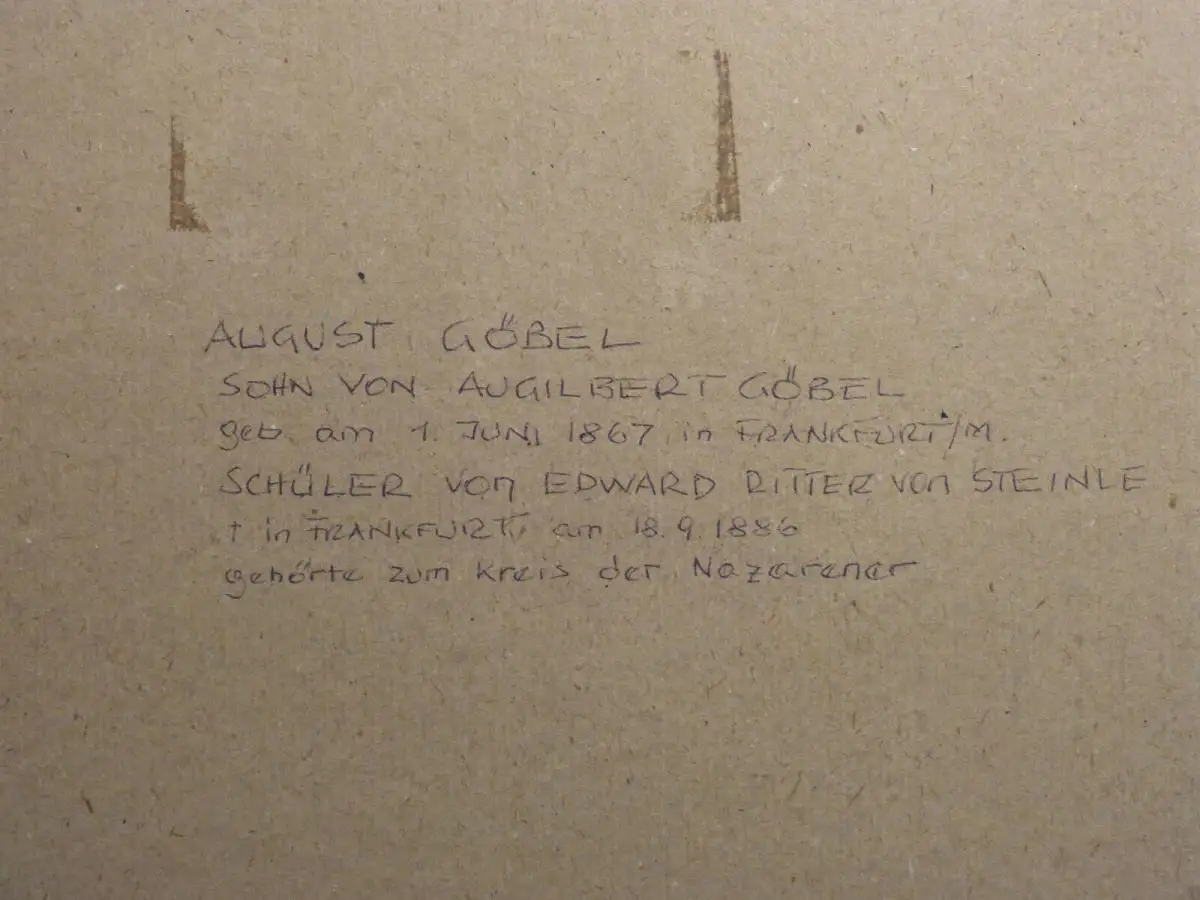 AUGUST GÖBEL
SOHN VON AUGILBERT GÖBEL
geb. am 1. JUNI 1867 in FRANKFURT/M.
SCHÜLER von EDWARD RITTER von STEINLE
† in FRANKFURT am 18.9.1886
gehörte zum Kreis der Nazarener